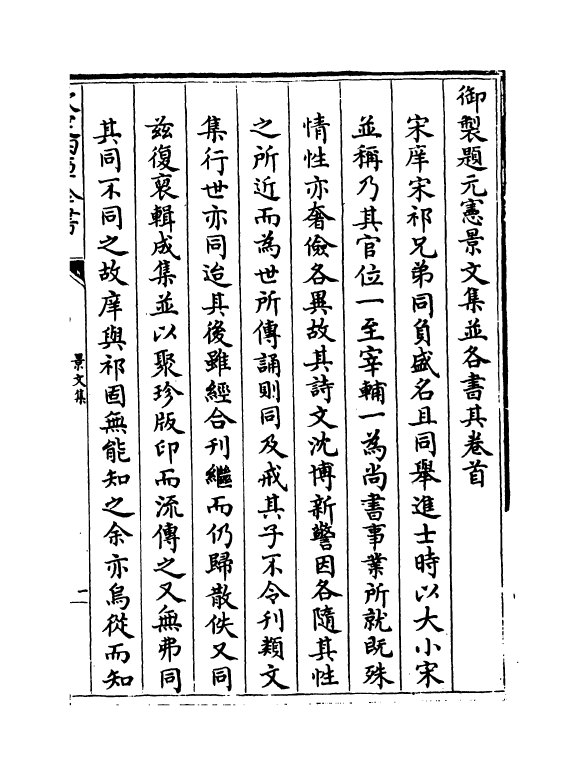 御製題元憲景文集並各書其卷首
宋庠宋祁兄弟同負盛名且同舉進士時以大小宋
並稱乃其官位一至宰輔一為尚書事業所就既殊
情性亦奢儉各異故其詩文沈博新警因各隨其性
之所近而為世所傳誦則同及戒其子不令刊類文
集行世亦同迨其後雖經合刊繼而仍歸散佚又同
茲復裒輯成集並以聚珍版印而流傳之又無弗同
其同不同之故庠與祁固無能知之余亦烏從而知
景文集
二